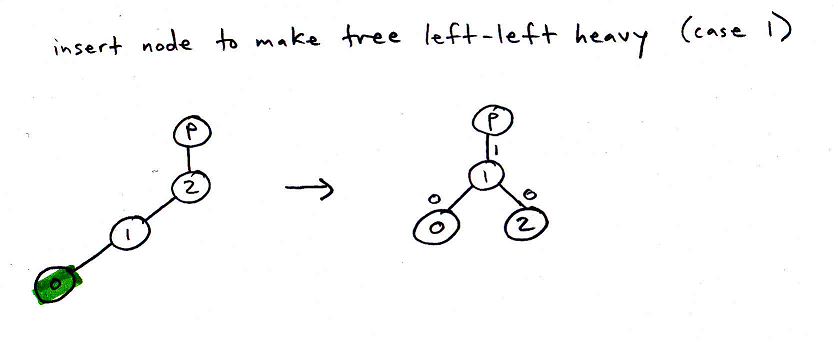 insert node to make tree left-left heavy (case 1)
P
2
1
0
→
P
1
1
0
0
0
2